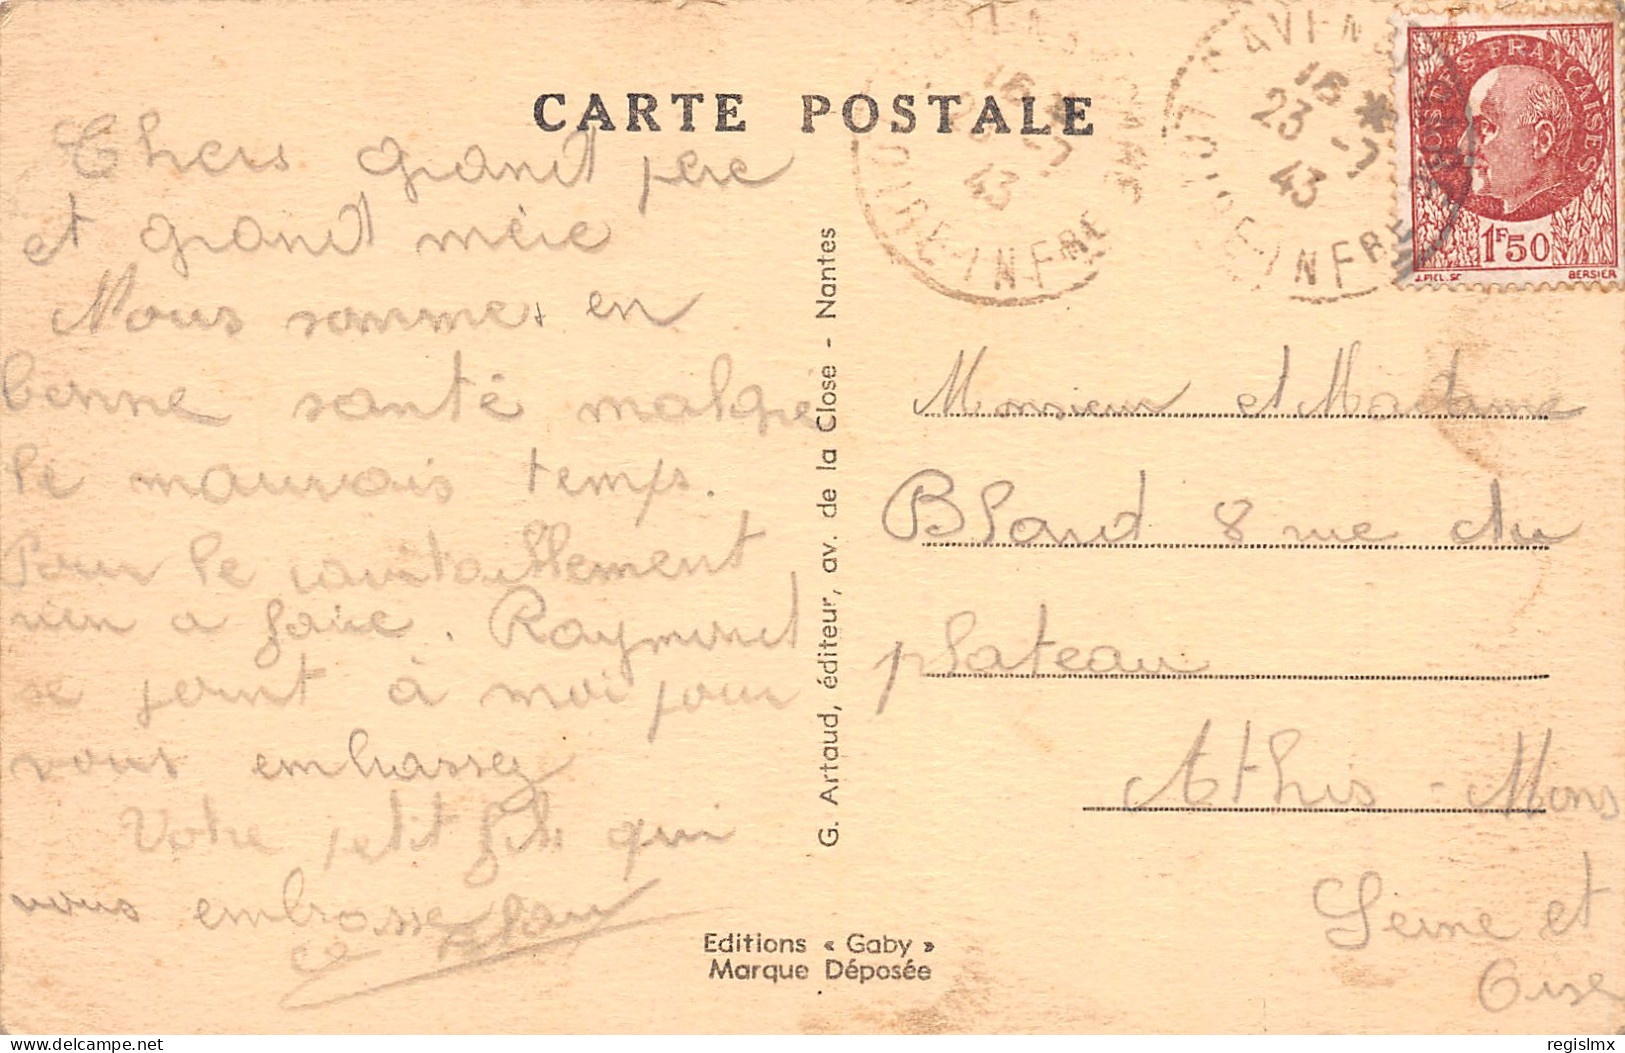 CARTE POSTALE
Chers grand père
et grand mère
Nous sommes en
bonne santé malgre
le mauvais temps.
Pour le ravitaillement
rien a faire. Raymond
se joint à moi pour
vous embrassez
Votre petit fils qui
vous embrasse
G. Artaud, éditeur, av. de la Close - Nantes
Editions « Gaby »
Marque Déposée
16 *
23 - 7
43
LOIRE-INFRE
16 *
23 - 7
43
LOIRE-INFRE
POSTES FRANÇAISES
1F50
J.PIEL.SC BERSIER
Monsieur et Madame
Bland 8 rue du
plateau
Athis-Mons
Seine et
Oise
regislmx
delcampe.net